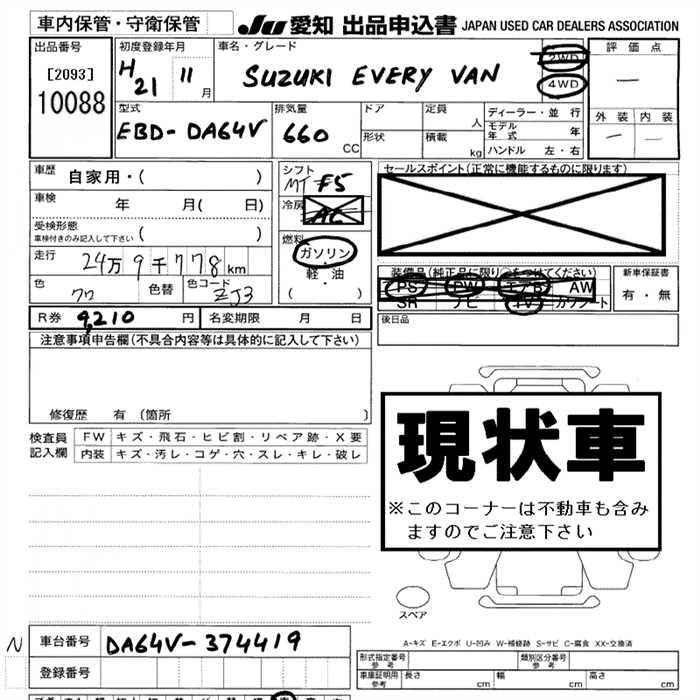 車内保管・守衛保管
JU 愛知 出品申込書 JAPAN USED CAR DEALERS ASSOCIATION
出品番号
[2093]
10088
初度登録年月
H21 11月
車名・グレード
SUZUKI EVERY VAN
2WD
4WD
評価点
—
外装 内装
— —
型式
EBD-DA64V
排気量
660 CC
ドア
形状
定員 人
積載 kg
ディーラー・並行
モデル年式 年
ハンドル 左・右
車歴 自家用・( )
車検 年 月( 日)
受検形態
車検付きのみ記入して下さい ( )
走行 24万9千778km
色 色替 色コード ZJ3
シフト
MT F5
冷房
AC
燃料
ガソリン
・軽・油
( )
セールスポイント(正常に機能するものに限ります)
装備品(純正品に限り○をつけてください)
PS PW エアB AW
SR ナビ TV カワシート
新車保証書
有・無
後日品
R券 9,210 円 名変期限 月 日
注意事項申告欄(不具合内容等は具体的に記入して下さい)
修復歴 有 (箇所 )
検査員記入欄
FW キズ・飛石・ヒビ割・リペア跡・X要
内装 キズ・汚レ・コゲ・穴・スレ・キレ・破レ
現状車
※このコーナーは不動車も含み
ますのでご注意下さい
スペア
N 車台番号 DA64V-374419
登録番号
A-キズ E-エクボ U-凹み W-補修跡 S-サビ C-腐食 XX-交換済
形式指定番号 参考
類別区分番号 参考
車庫証明用 参考 長さ cm 幅 cm 高さ cm